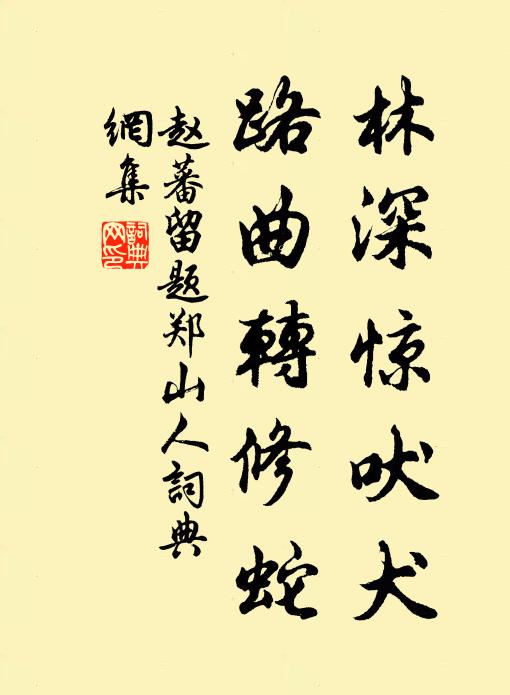 林深惊吠犬
路曲轉修蛇
赵蕃留题郑山人詞典
網集
詞典
网印